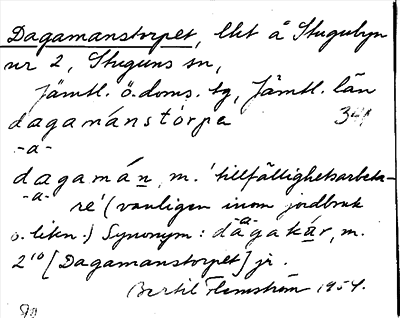 Dagamanstorpet, lht å Stugubyn
nr 2, Stuguns sn,
Jämtl. ö. doms. tg, Jämtl. län
dagamánstórpe 341
-a-
dagamán, m. 'tillfällighetsarbeta-
-a- re' (vanligen inom jordbruk
o. likn.) Synonym: dagakár, m.
-a-
2¹⁰ [Dagamanstorpet] jr.
Bertil Flemström 1954.